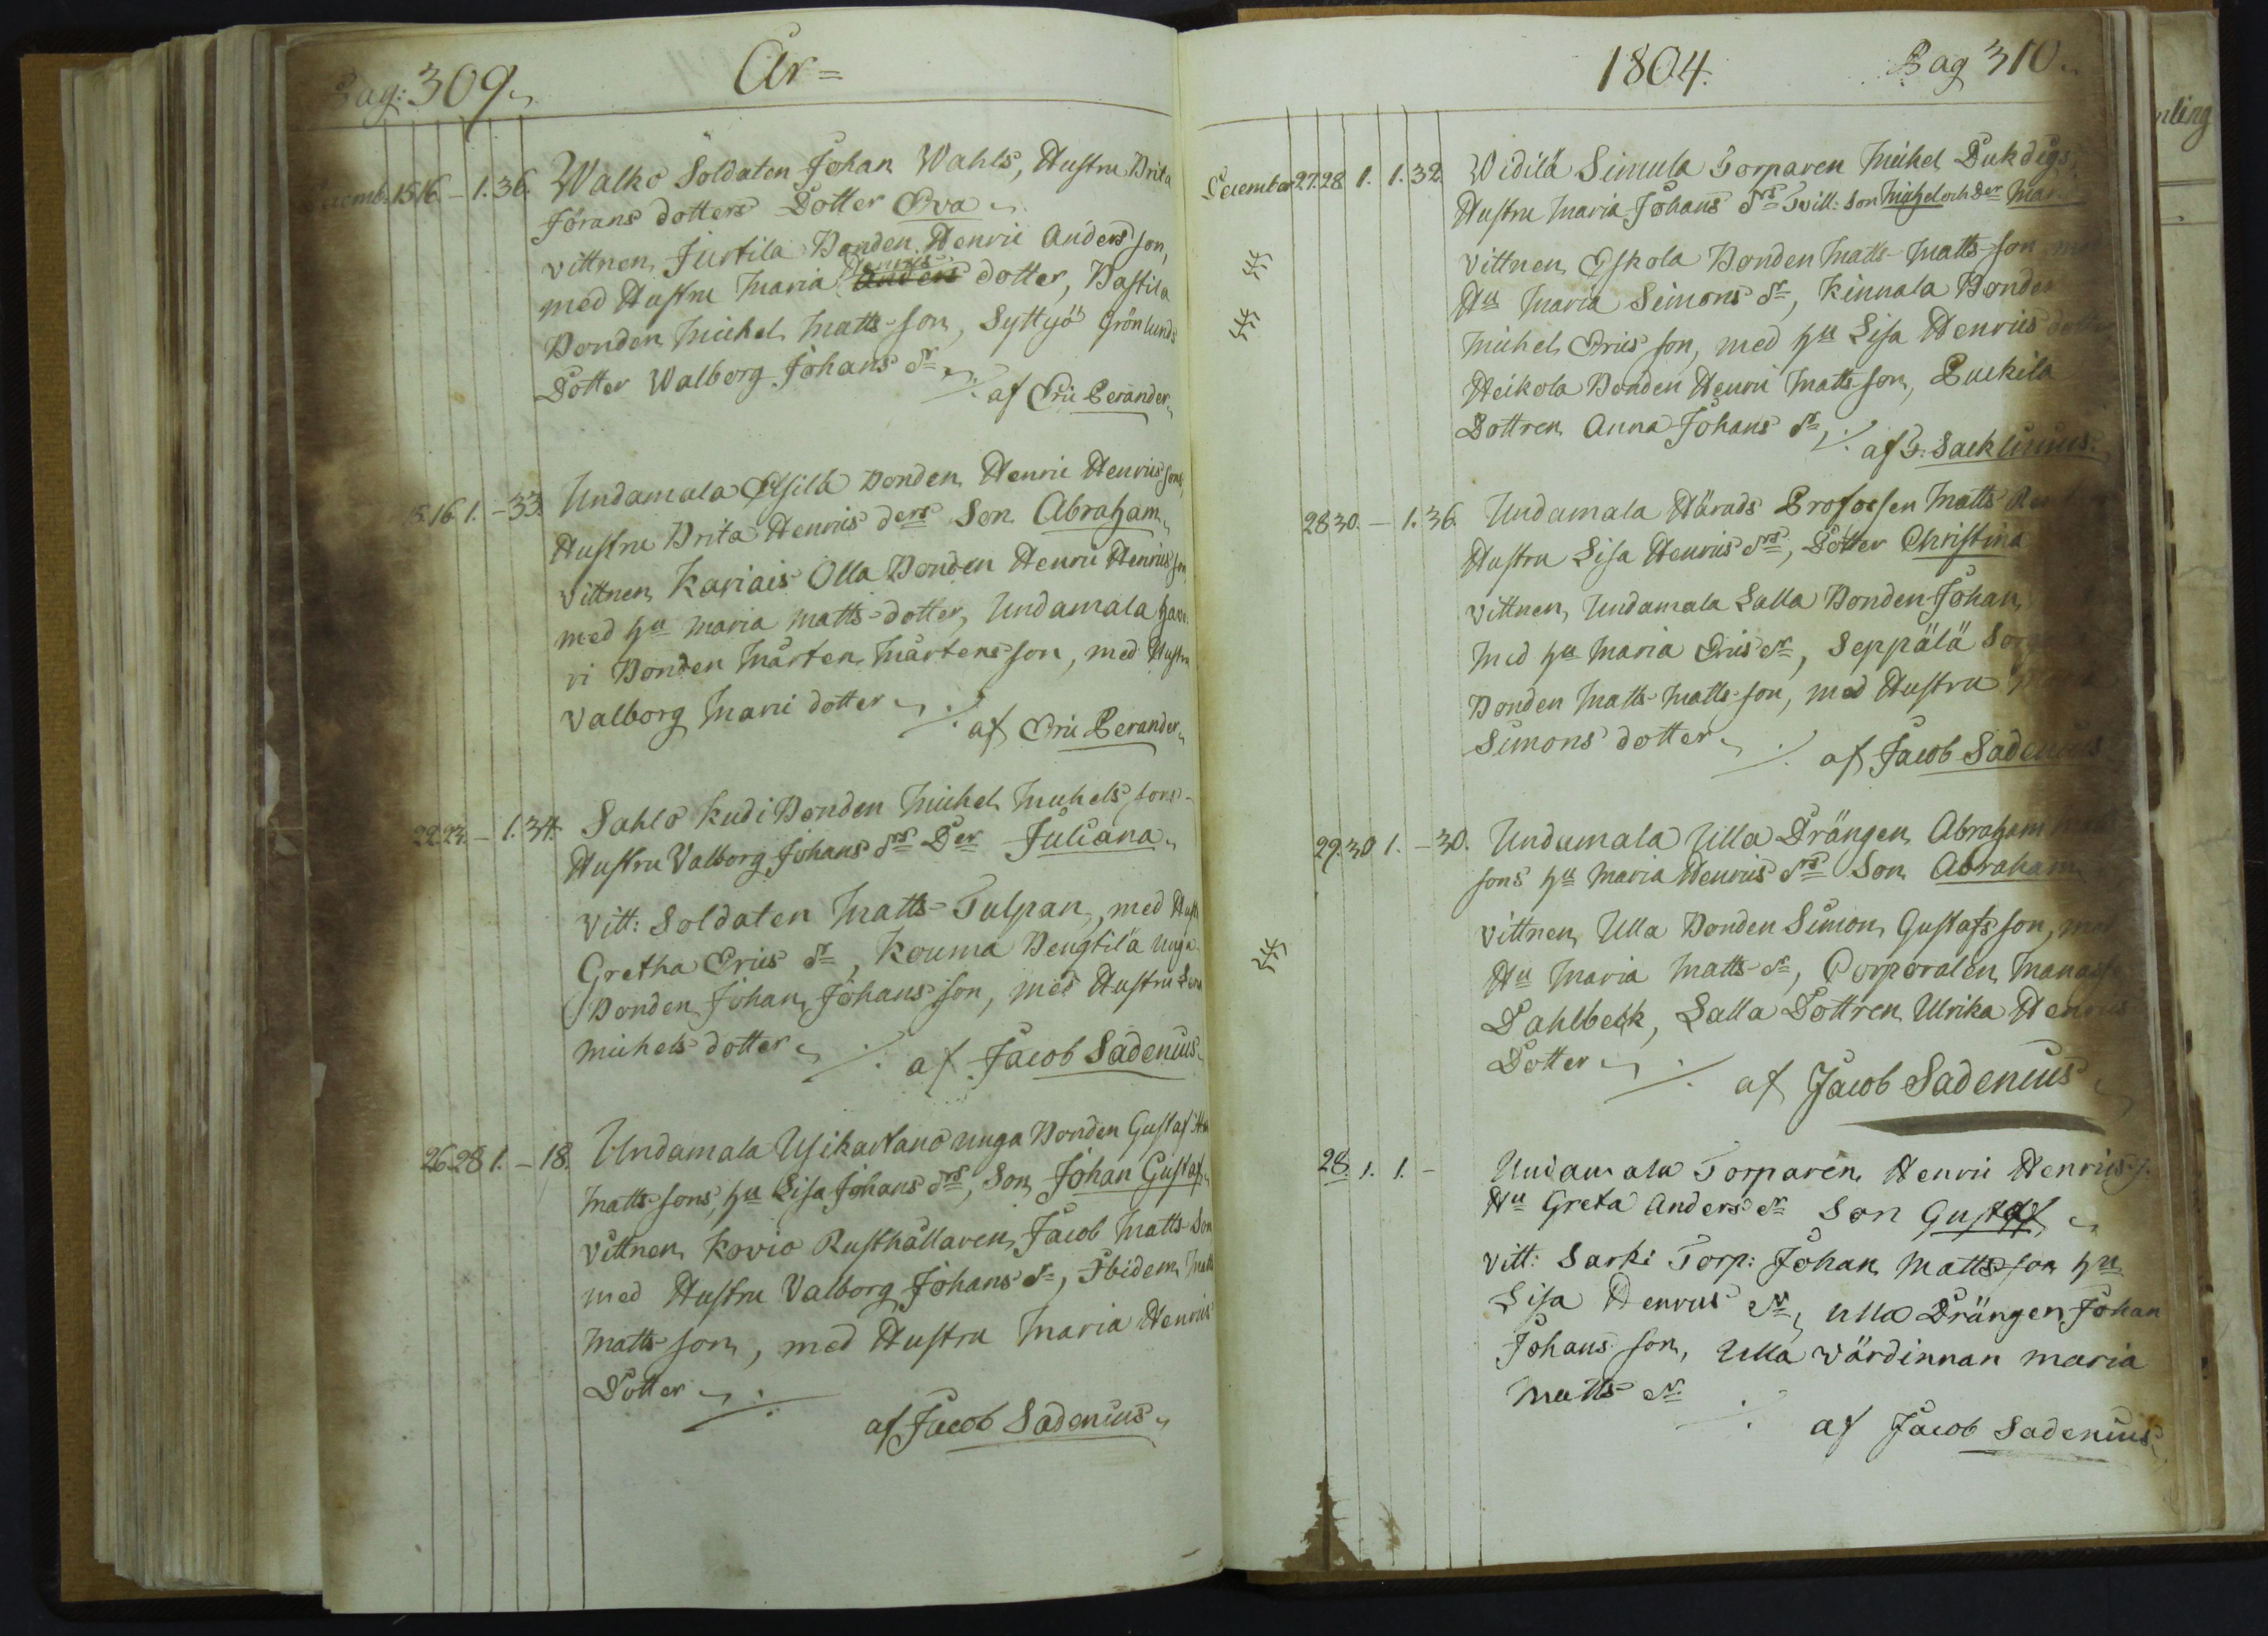 Pag: 309.
År=
Decemb. 15 16 – 1. 36. Walko Soldaten Johan Wahls, Hustru Brita
Jörans dotters Dotter Eva
vittnen, Jurtila Bonden Henric Anders son,
Henrics
med Hustru Maria Anders dotter, Bastila
Bonden Michel Matts-son, Syttyö Grönlunds
Dotter Walborg Johans dr
af Eric Perander
15. 16. 1. – 33. Undamala Bonden Henric Henrics sons
Hustru Brita Henrics drs Son Abraham
vittnen, Kariais Olla Bonden Henric Henrics son
med hu Maria Matts-dotter, Undamala
ri Bonden Mårten Mårtens son, med Hustru
Valborg dotter
af Eric Perander
22. 23. – 1. 34. Sahlo Kudi Bonden Michel Michels sons
Hustru Valborg Johans drs Der Juliana
Vitt: Soldaten Matts Tulpan, med Hust
Gretha Erics dr, Kouma Bengtilä unga
Bonden Johan Johans son, med Hustru
Michels dotter
af Jacob Sadenius
26. 28 1. – 18. Undamala Usikartano unga Bonden Gustaf
Matts sons, hu Lisa Johans drs, Son Johan Gustaf
vittnen, Kovio Rusthållaren Jacob Matts Son
med Hustru Valborg Johans dr, Ibidem Matts
Matts son, med Hustru Maria Henrics
Dotter
af Jacob Sadenius
1804.
Pag 310.
December 27. 28. 1. 1. 32. Widilä Simula Torparen Michel
Hustru Maria Johans drs Tvill: Son Michel och Der Mar
vittnen, Eskola Bonden Matts Matts-son med
Hu Maria Simons dr, Kinnala Bonden
Michel Erics son, med hu Lisa Henrics dotter
Heikola Bonden Henric Matts-son, Puckila
Dottren Anna Johans dr
af G: Sacklinius.
28 30. – 1. 36. Undamala Härads Profossen Matts
Hustru Lisa Henrics drs, Dotter Christina
vittnen, Undamala Lalla Bonden Johan
med hu Maria Erics dr, Seppälä
Bonden Matts Matts-son, med Hustru
Simons dotter
af Jacob Sadenius
29. 30 1. – 30. Undamala Ulla Drängen Abraham
sons hu Maria Henrics drs Son Abraham
vittnen, Ulla Bonden Simon Gustafs son, med
Hu Maria Matts dr, Corporalen Manasse
Dahlbeck, Lalla Dottren Ulrika Henrics
Dotter
af Jacob Sadenius
28. 1. 1. – Undamala Torparen Henric Henrics s.
Hu Greta Anders dr Son Gustaf
vitt: Sarki Torp: Johan Matts son hu
Lisa Henrics dr, Ulla Drängen Johan
Johans son, Ulla värdinnan Maria
Matts dr
af Jacob Sadenius